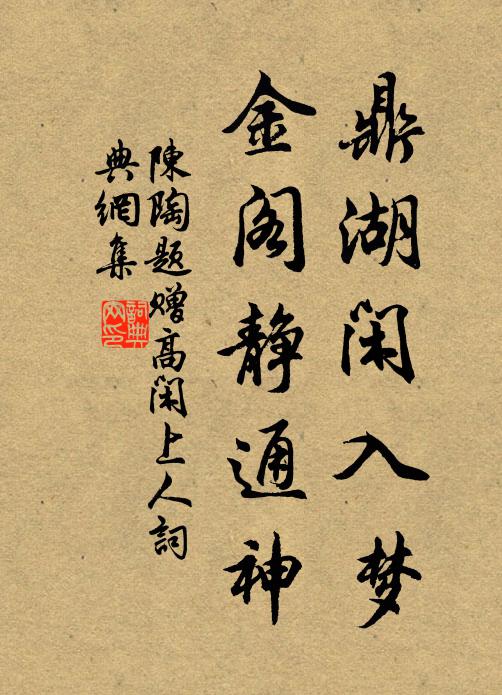 鼎湖闲入梦
金阁静通神
陳陶题赠高闲上人詞
典網集
詞典網印